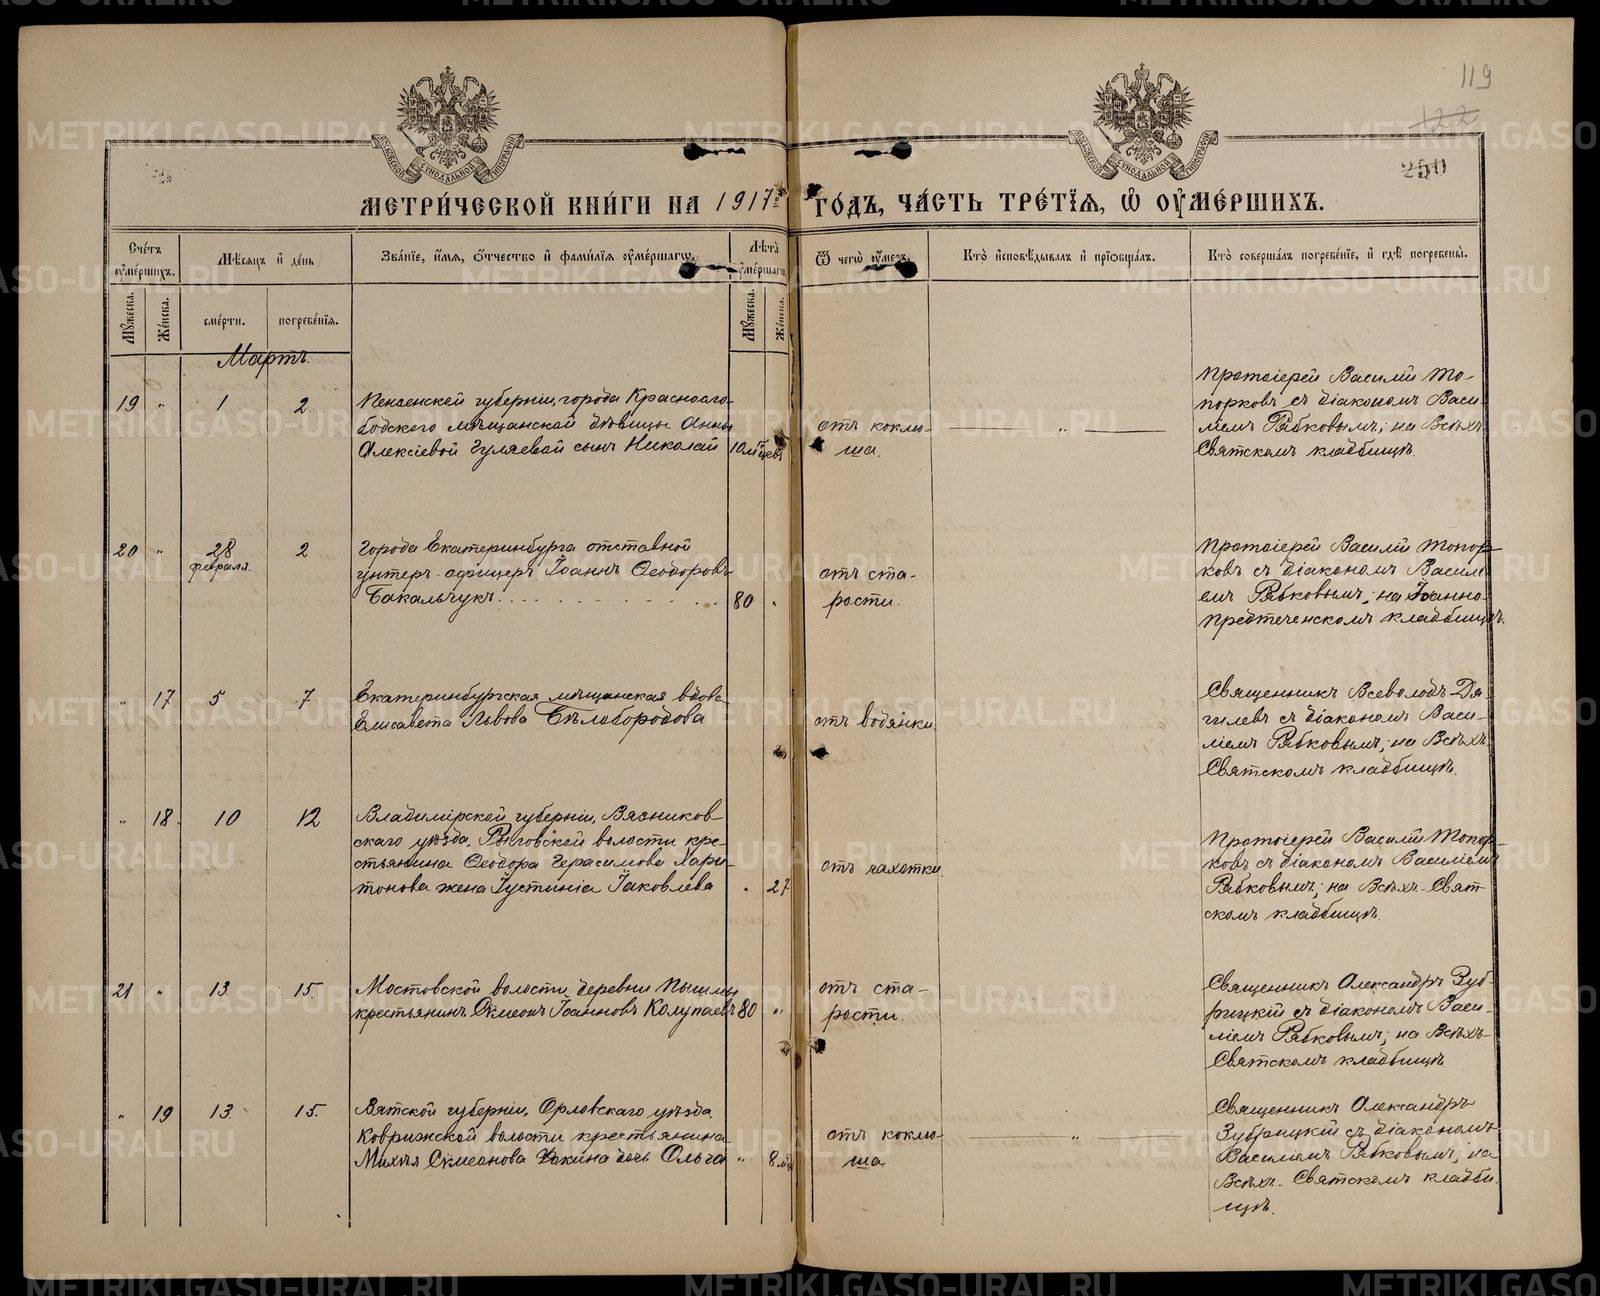 119
122
250
МЕТРИ́ЧЕСКОЙ КНИ́ГИ НА 1917й ГО́ДЪ, ЧА́СТЬ ТРЕ́ТЇѦ, Ѡ҆ ОУ҆МЕ́РШИХЪ.
Сче́тъ оу҆ме́ршихъ.
Мѣ́сяцъ и҆ де́нь
Зва́нїе, и҆́мя, ѻ҆́тчество и҆ фамѝлїя оу҆ме́ршагѡ.
Лѣ́та оу҆ме́ршагѡ.
Ѿ чегѡ̀ оу҆́меръ.
Кто̀ и҆сповѣ́дывалъ и҆ прїѻбща́лъ.
Кто̀ соверша́лъ погребе́нїе, и҆ гдѣ̀ погребены̀.
Мꙋ́жеска.
Же́нска.
сме́рти.
погребе́нїя.
Мꙋ́жеска.
Же́нска.
Мартъ.
19 " 1 2
Пензенской губерніи, города Красносло-
бодского мѣщанской дѣвицы Анны
Алексіевой Гуляевой сынъ Николай 10 мѣсяцевъ
отъ коклю-
ша.
"
Протоіерей Василій То-
порковъ съ діакономъ Васи-
ліемъ Рябковымъ; на Всѣхъ
Святскомъ кладбищѣ.
20 " 28 2
февраля.
Города Екатеринбурга отставной
унтеръ-офицеръ Іоаннъ Ѳеодоровъ
Бакальчукъ. 80 "
отъ ста-
рости.
Протоіерей Василій Топор-
ковъ съ діакономъ Васил-
емъ Рябковымъ; на Іоанно
Предтеченскомъ кладбищѣ.
" 17 5 7
Екатеринбургская мѣщанская вдова
Елисавета Львова Бѣлобородова
отъ водянки.
Священникъ Всеволодъ Дя-
гилевъ съ діакономъ Васи-
ліемъ Рябковымъ; на Всѣхъ
Святскомъ кладбищѣ.
" 18 10 12
Владимірской губерніи, Вязников-
скаго уѣзда, Рыловской волости кре-
стьянина Ѳеодора Герасимова Хари-
тонова жена Іустинія Іаковлева " 27
отъ чахотки.
Протоіерей Василій Топор-
ковъ съ діакономъ Василіемъ
Рябковымъ; на Всѣхъ-Свят-
скомъ кладбищѣ.
21 " 13 15.
Мостовской волости, деревни Пышмы
крестьянинъ Сѵмеонъ Іоанновъ Колупаевъ 80 "
отъ ста-
рости.
Священникъ Александръ Зуб-
рицкій съ діакономъ Васи-
ліемъ Рябковымъ; на Всѣхъ-
Святскомъ кладбищѣ
" 19 13 15.
Вятской губерніи, Орловскаго уѣзда,
Коврижской волости крестьянина
Михея Сѵмеонова дочь Ольга " 8 мѣс
отъ коклю-
ша.
"
Священникъ Александръ
Зубрицкій съ діакономъ
Василіемъ Рябковымъ; на
Всѣхъ-Святскомъ кладби-
щѣ.
METRIKI.GASO-URAL.RU